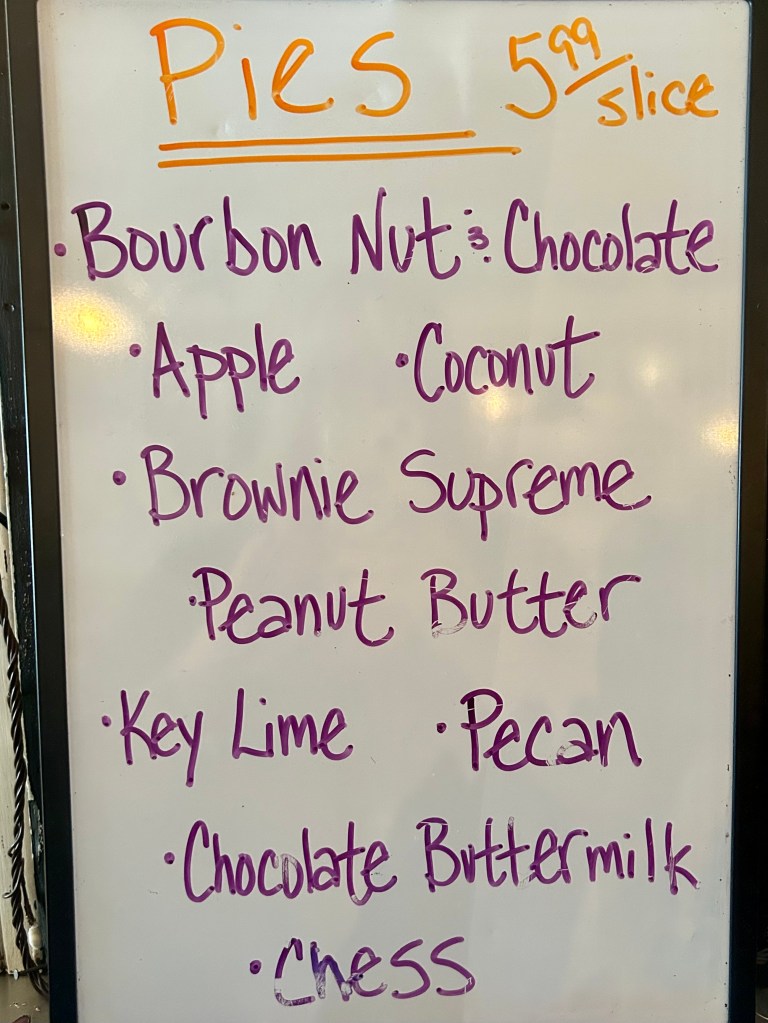 Pies 5.99/slice
• Bourbon Nut & Chocolate
• Apple • Coconut
• Brownie Supreme
• Peanut Butter
• Key Lime • Pecan
• Chocolate Buttermilk
• Chess